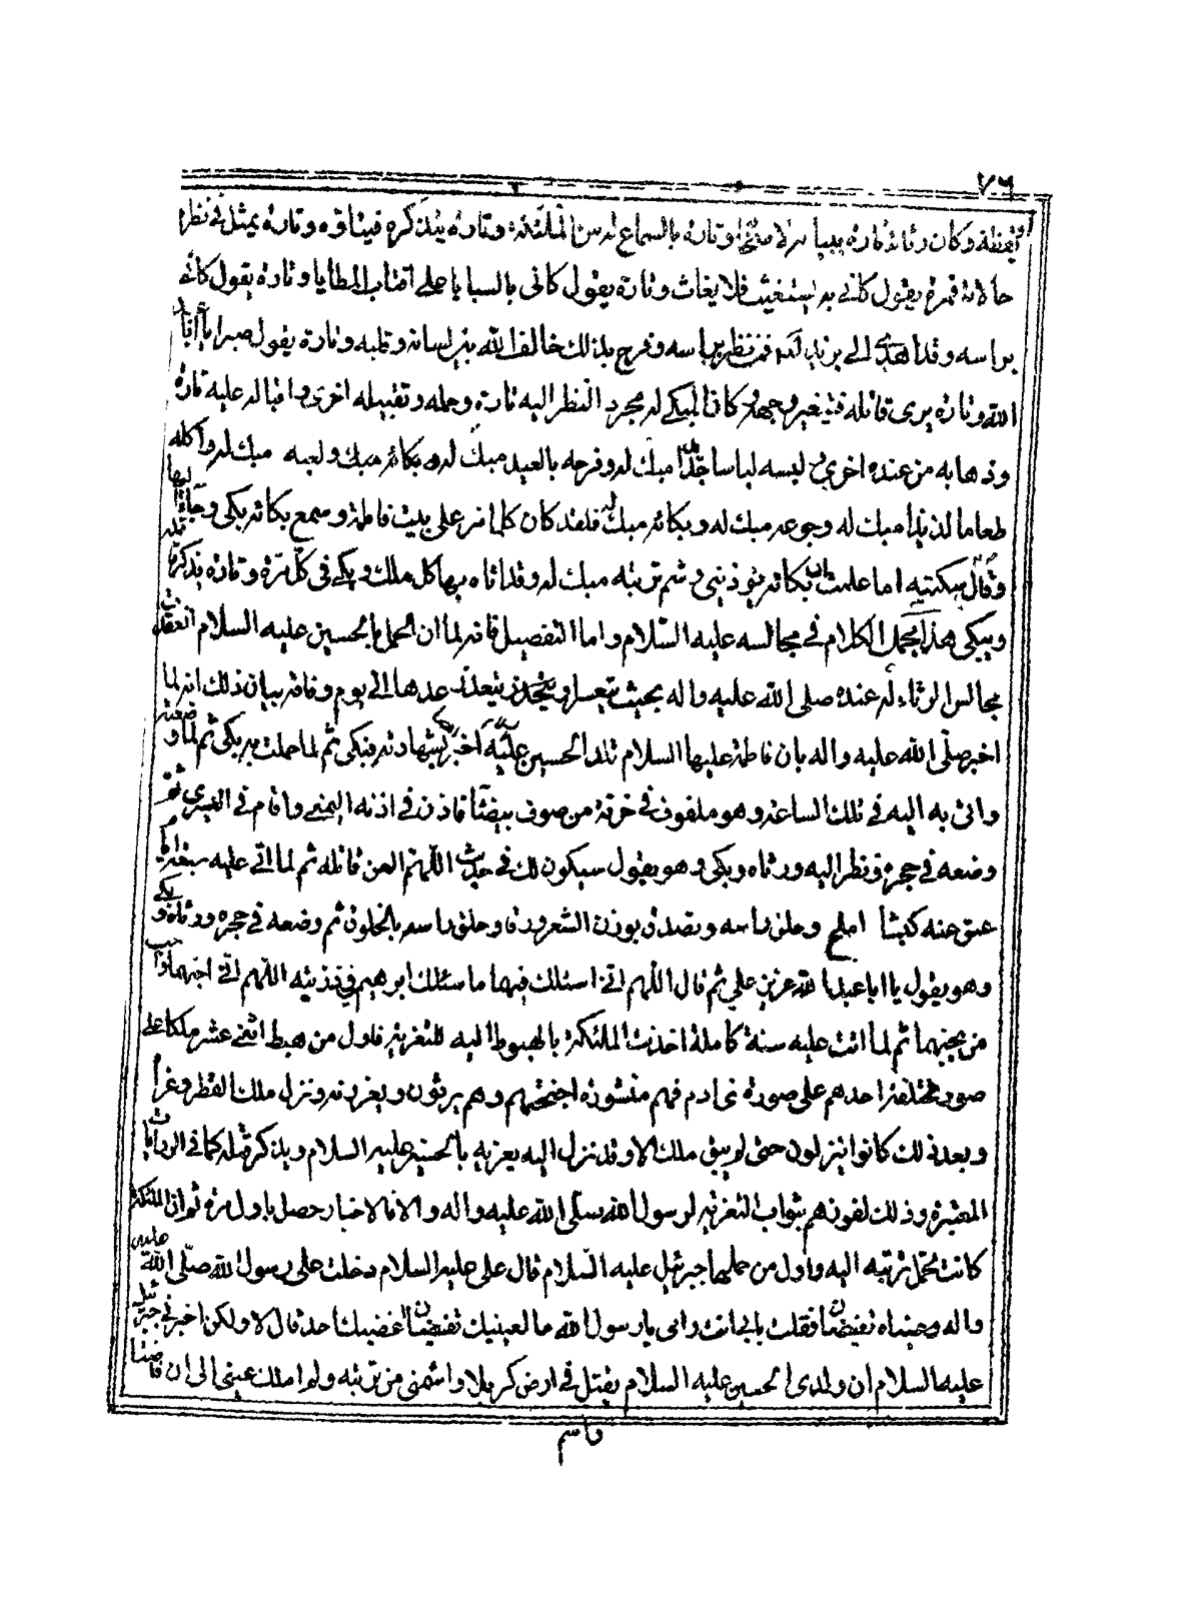 ٧٦
يقظة وكان رثائه تارة بالسماع له من الملئكة وتارة يتذكره فيتاوه وتارة يمثل في نظره
حالاته فمرة يقول كاني به يستغيث فلا يغاث وتارة يقول كاني بالسبايا على اقتاب المطايا وتارة يقول كانه
براسه وقد اهدى الى يزيد لعنه فمن نظر براسه وفرح بذلك خالف الله بين لسانه وقلبه وتارة يقول صبرا يا ابا
الله وتارة يرى قاتله فيتغير وجهه كان المبكى له مجرد النظر اليه تارة وحمله وتقبيله اخرى واقباله عليه تارة
وذهابه من عنده اخرى لبسه لباسا جديدا مبك له وفرحه بالعيد مبك له وبكائه مبك ولعبه مبك له واكله
طعاما لذيذا مبك له وجوعه مبك له وبكائه مبك له فلقد كان كلما مر على بيت فاطمة وسمع بكائه بكى وجاء اليها
وقال سكتيه اما علمت ان بكائه يؤذيني وشم تربته مبك له وقد اتاه بها كل ملك وبكى في كل مرة وتارة يذكر قتله
ويبكى هذا مجمل الكلام في مجالسه عليه السلام واما التفصيل فانه لما ان الحمل بالحسين عليه السلام انعقدت
مجالس الرثاء له عنده صلى الله عليه واله بحيث يتعسر بل يتعذر عدها الى يوم وفاته بيان ذلك انه لما
اخبر صلى الله عليه واله بان فاطمة عليها السلام تلد الحسين عليه اخبر بشهادته فبكى ثم لما حملت به بكى ثم لما وضعته
واتى به اليه في تلك الساعة وهو ملفوف في خرقة من صوف بيضاء فاذن في اذنه اليمنى واقام في اليسرى ثم
وضعه في حجره ونظر اليه ورثاه وبكى وهو يقول سيكون لك حديث اللهم العن قاتله ثم لما اتى عليه سبعة ايام
عق عنه كبشا املح وحلق راسه وتصدق بوزن الشعر ورقا وحلق راسه بالخلوق ثم وضعه في حجره ورثاه وبكى
وهو يقول يا ابا عبد الله عزيز علي ثم قال اللهم اني اسئلك فيهما ما سئلك ابرهيم في ذريته اللهم اني احبهما واحب
من يحبهما ثم لما اتت عليه سنة كاملة اخذت الملئكة بالهبوط اليه للتعزية فاول من هبط اثنى عشر ملكا على
صور مختلفة احدهم على صورة بني ادم فهم منشورة اجنحتهم وهم يرثون ويعزونه ونزل ملك القطر وعزا
وبعد ذلك كانوا ينزلون حتى لم يبق ملك الا وقد نزل اليه يعزيه بالحسين عليه السلام ويذكر قتله كما في الروايات
المعتبرة وذلك لفوزهم بثواب التعزية لرسول الله صلى الله عليه واله والا فالاخبار حصل باول مرة ثم ان الملئكة
كانت تحمل تربته اليه واول من حملها جبرئيل عليه السلام قال علي عليه السلام دخلت على رسول الله صلى الله عليه
واله وعيناه تفيضان فقلت بابي انت وامي يا رسول الله ما لعينيك تفيضان اغضبك احد قال لا ولكن اخبرني جبرئيل
عليه السلام ان ولدي الحسين عليه السلام يقتل في ارض كربلا واشمني من تربته ولم املك عيني الى ان فاضتا
واسم